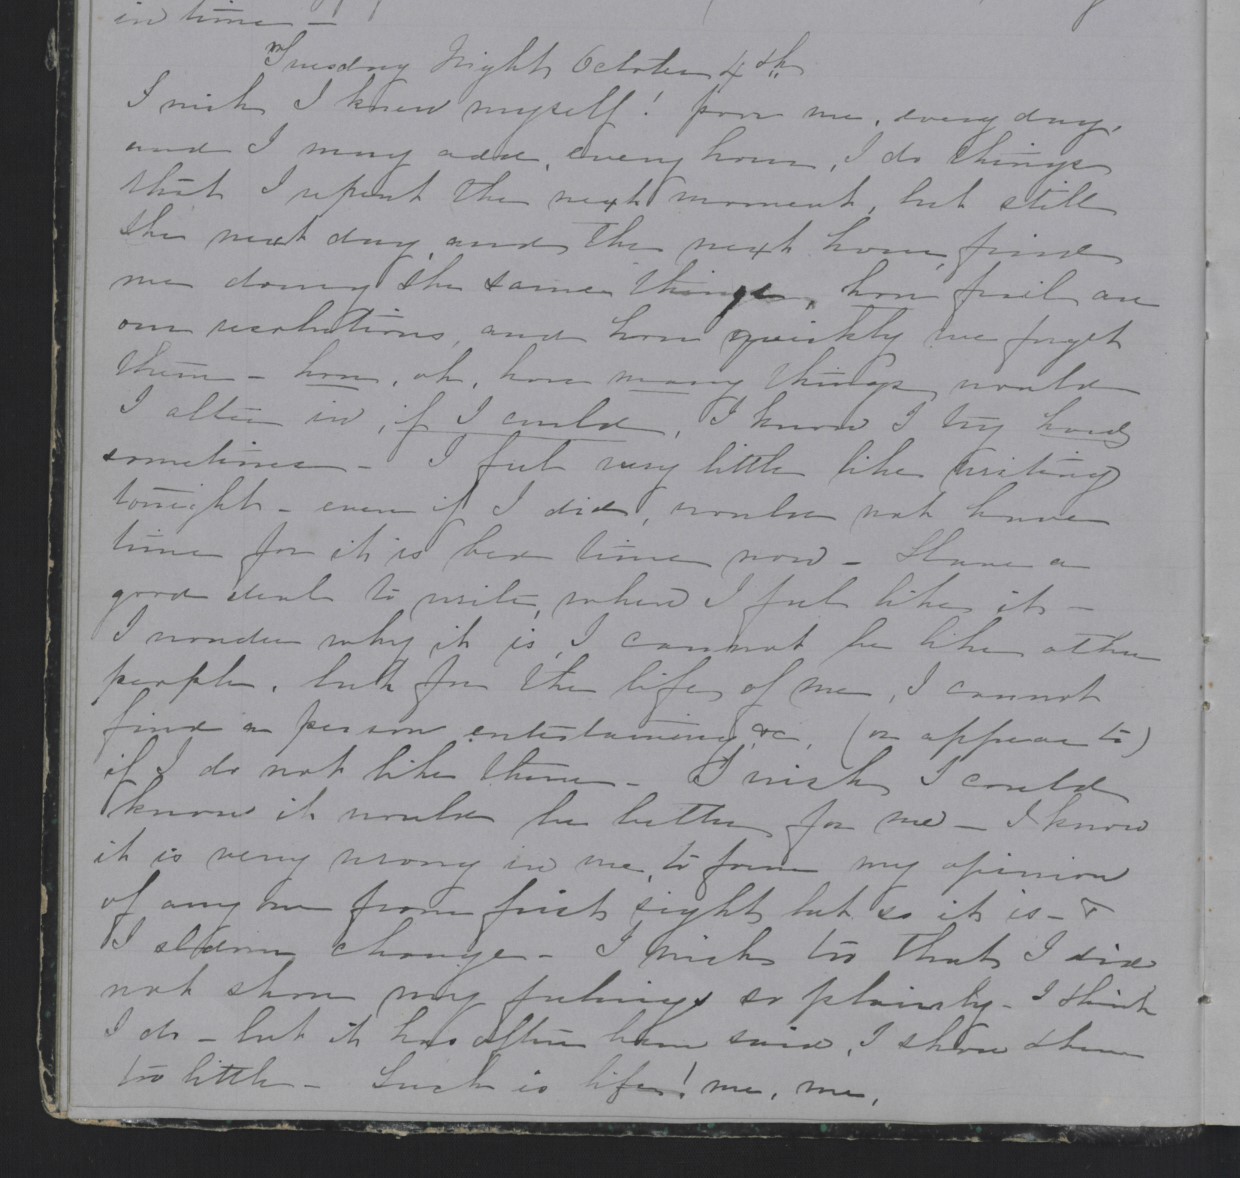 in time —
Tuesday Night October 4th
I wish I knew myself! poor me, every day,
and I may add, every hour, I do things
that I repent the next moment, but still
the next day, and the next hour, find
me doing the same things, how frail are
our resolutions, and how quickly we forget
them — how, oh, how many things would
I alter in, if I could, I know I try hard
sometimes — I feel very little like writing
tonight — even if I did, would not have
time for it is bed time now — Have a
good deal to write, when I feel like it —
I wonder why it is, I cannot be like other
people, but for the life of me, I cannot
find a person entertaining &c, (or appear to)
if I do not like them — I wish I could
know it would be better for me — I know
it is very wrong in me, to form my opinion
of any one from first sight but so it is — &
I seldom change — I wish too that I did
not show my feelings so plainly — I think
I do — but it has often been said, I show them
too little — Such is life! me, me,